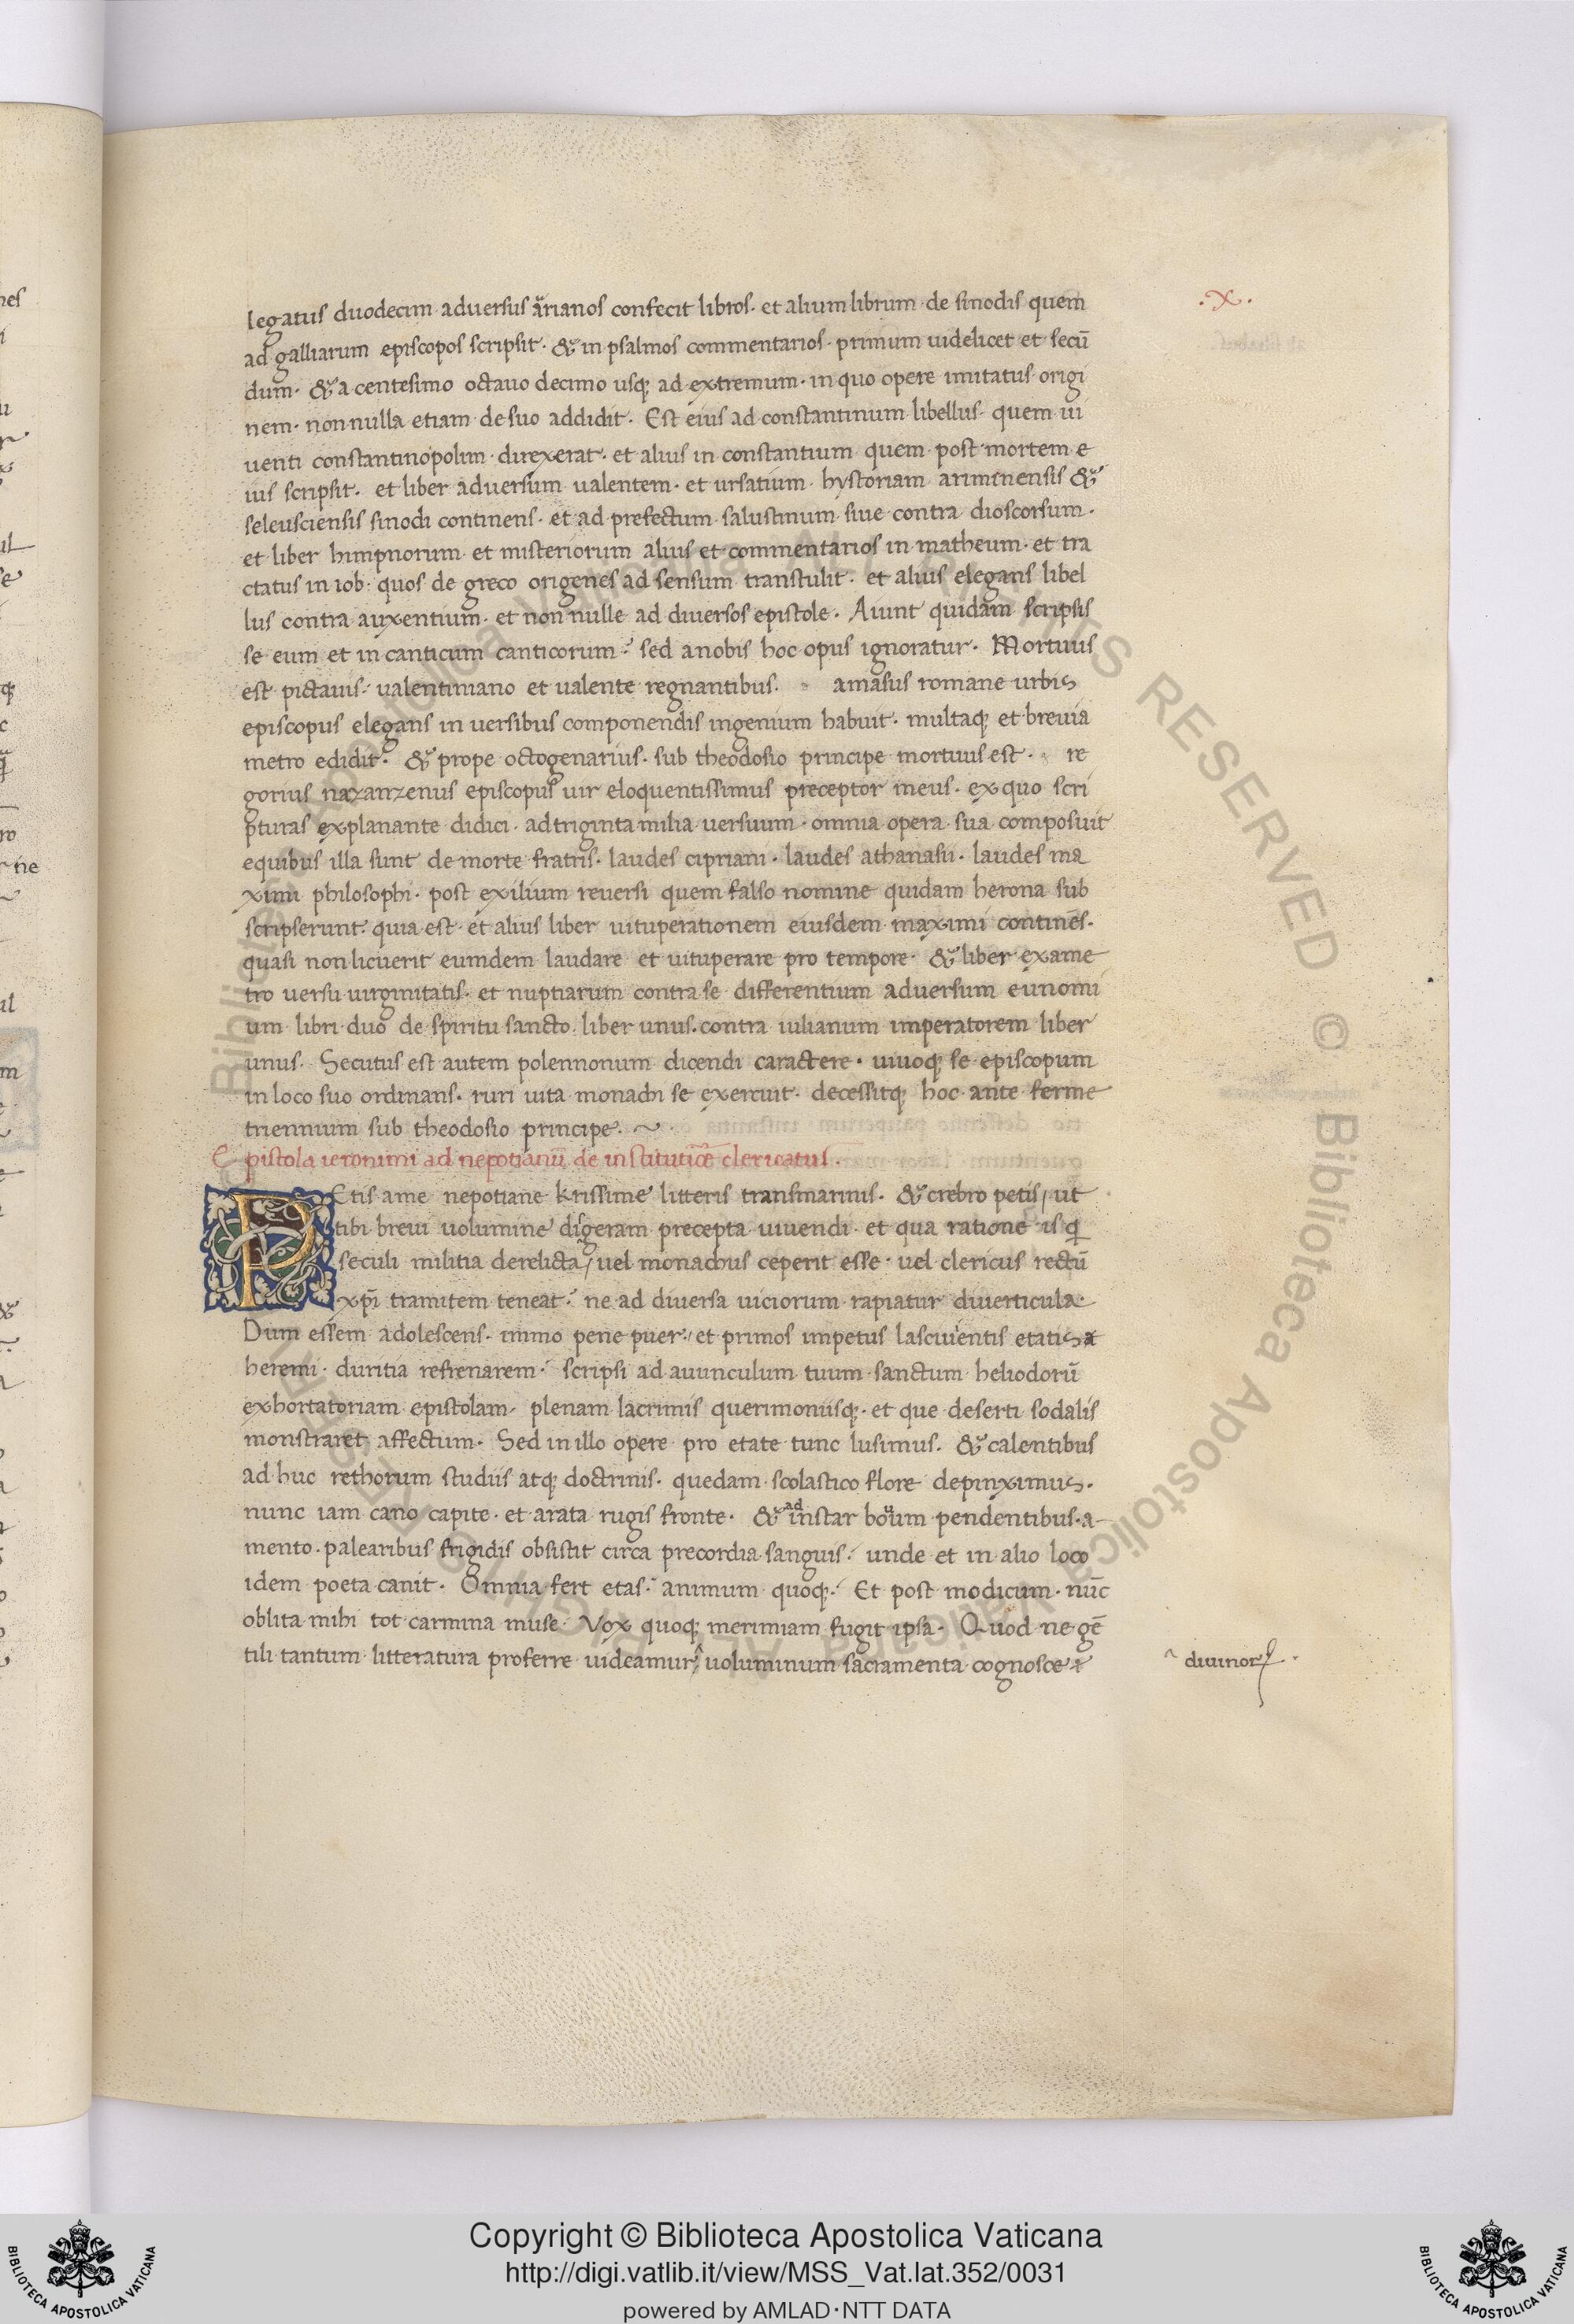 .X.
legatus duodecim adversus arrianos confecit libros. et alium librum de sinodis quem
ad galliarum episcopos scripsit. & in psalmos commentarios primum uidelicet et secū
dum. & a centesimo octauo decimo usq; ad extremum. in quo opere imitatus origi
nem. non nulla etiam de suo addidit. Est eius ad constantinum libellus quem ui
uenti constantinopolim direxerat. et alius in constantium quem post mortem e
ius scripsit. et liber adversum ualentem. et ursatium hystoriam ariminensis &
seleusciensis sinodi continens. et ad prefectum salustinum siue contra dioscorsum.
et liber himpnorum et misteriorum alius et commentarios in matheum. et tra
ctatus in iob. quos de greco origenes ad sensum transtulit. et alius elegans libel
lus contra auxentium. et non nulle ad diuersos epistole. Aiunt quidam scripsis
se eum et in canticum canticorum. sed a nobis hoc opus ignoratur. Mortuus
est pictauis. ualentiniano et ualente regnantibus. amasus romane urbis
episcopus elegans in uersibus componendis ingenium habuit. multaq; et breuia
metro edidit. & prope octogenarius. sub theodosio principe mortuus est. re
gorius nazanzenus episcopus uir eloquentissimus preceptor meus. ex quo scri
pturas explanante didici. ad triginta milia uersuum omnia opera sua composuit
equibus illa sunt de morte fratris. laudes cipriani. laudes athanasii. laudes ma
ximi philosophi. post exilium reuersi quem falso nomine quidam herona sub
scripserunt. quia est et alius liber uituperationem eiusdem maximi continēs.
quasi non licuerit eumdem laudare et uituperare pro tempore. & liber exame
tro uersu uirginitatis. et nuptiarum contra se differentium adversum eunomi
um libri duo de spiritu sancto. liber unus. contra iulianum imperatorem liber
unus. Secutus est autem polennonum dicendi caractere. uiuoq; se episcopum
in loco suo ordinans. ruri uita monachi se exercuit. decessitq; hoc ante ferme
triennium sub theodosio principe. ~
Epistola ieronimi ad nepotianū de institutiōe clericatus.
PEtis a me nepotiane krissime litteris transmarinis. & crebro petis/ ut
tibi breui uolumine disgeram precepta uiuendi. et qua ratione is q
seculi militia derelicta/ uel monachus ceperit esse. uel clericus rectū
xp̄i tramitem teneat. ne ad diuersa uiciorum rapiatur diuerticula
Dum essem adolescens. immo pene puer. et primos impetus lasciuientis etatis a
heremi duritia refrenarem. scripsi ad auunculum tuum sanctum heliodorū
exhortatoriam epistolam. plenam lacrimis querimoniisq;. et que deserti sodalis
monstraret affectum. Sed in illo opere pro etate tunc lusimus. & calentibus
ad huc rethorum studiis atq; doctrinis. quedam scolastico flore depinximus.
nunc iam cano capite. et arata rugis fronte. & ad instar bouum pendentibus. a
mento. palearibus frigidis obsistit circa precordia sanguis. unde et in alio loco
idem poeta canit. Omnia fert etas. animum quoq;. Et post modicum. nūc
oblita mihi tot carmina muse. Vox quoq; merimiam fugit ipsa. Quod ne gē
tili tantum litteratura proferre uideamur^ uoluminum sacramenta cognosce
^ diuinoꝝ.
Copyright © Biblioteca Apostolica Vaticana
http://digi.vatlib.it/view/MSS_Vat.lat.352/0031
powered by AMLAD·NTT DATA